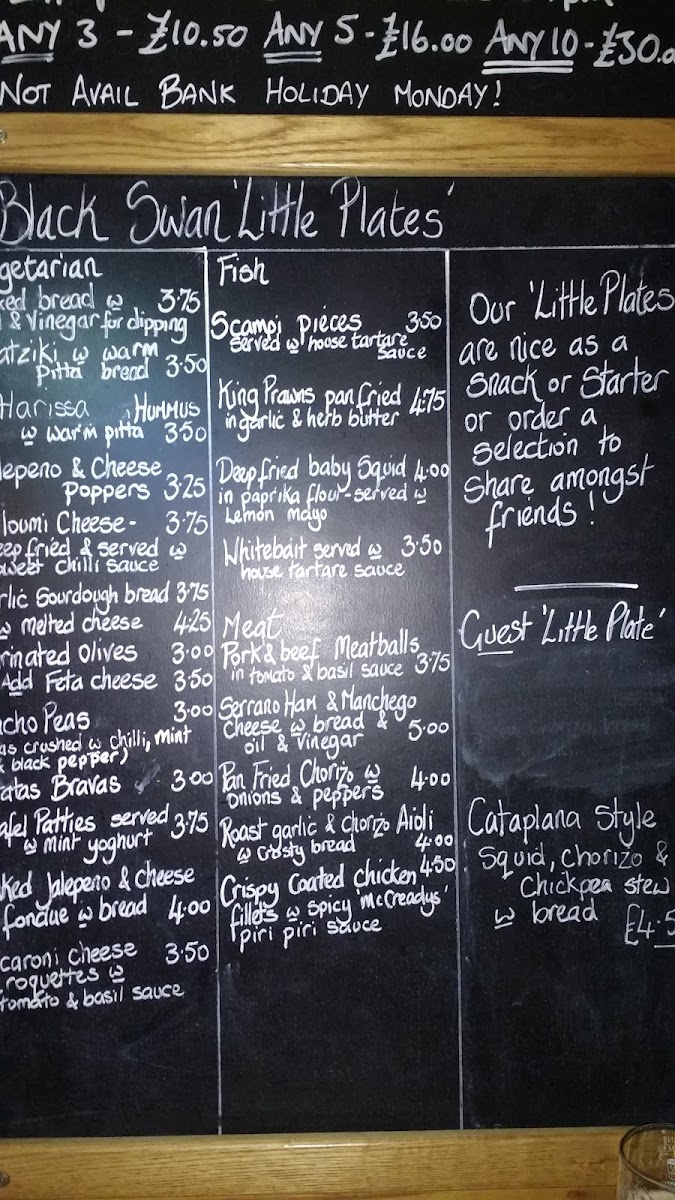 ANY 3 - £10.50 ANY 5 - £16.00 ANY 10 - £30.0
NOT AVAIL BANK HOLIDAY MONDAY!
Black Swan 'Little Plates'
getarian
ked bread w 3.75
& Vinegar for dipping
atziki w warm
pitta bread 3.50
Harissa Hummus
w warm pitta 3.50
lepeno & Cheese
poppers 3.25
loumi Cheese - 3.75
eep fried & served w
sweet chilli sauce
rlic Sourdough bread 3.75
w melted cheese 4.25
rinated Olives 3.00
Add Feta cheese 3.50
acho Peas 3.00
as crushed w chilli, mint
& black pepper)
atas Bravas 3.00
afel Patties served 3.75
w mint yoghurt
ked Jalepeno & cheese
fondue w bread 4.00
caroni cheese 3.50
roquettes w
tomato & basil sauce
Fish
Scampi pieces 3.50
served w house tartare
sauce
King Prawns pan fried 4.75
in garlic & herb butter
Deep fried baby Squid 4.00
in paprika flour - served w
Lemon mayo
Whitebait served w 3.50
house tartare sauce
Meat
Pork & beef Meatballs
in tomato & basil sauce 3.75
Serrano Ham & Manchego
cheese w bread &
oil & vinegar 5.00
Pan Fried Chorizo w 4.00
onions & peppers
Roast garlic & chorizo Aioli
w crusty bread 4.00
Crispy Coated chicken 4.50
fillets w spicy 'McCreadys'
piri piri sauce
Our 'Little Plates
are nice as a
snack or Starter
or order a
selection to
share amongst
friends!
Guest 'Little Plate'
Cataplana Style
squid, chorizo &
chickpea stew
w bread
£4.5